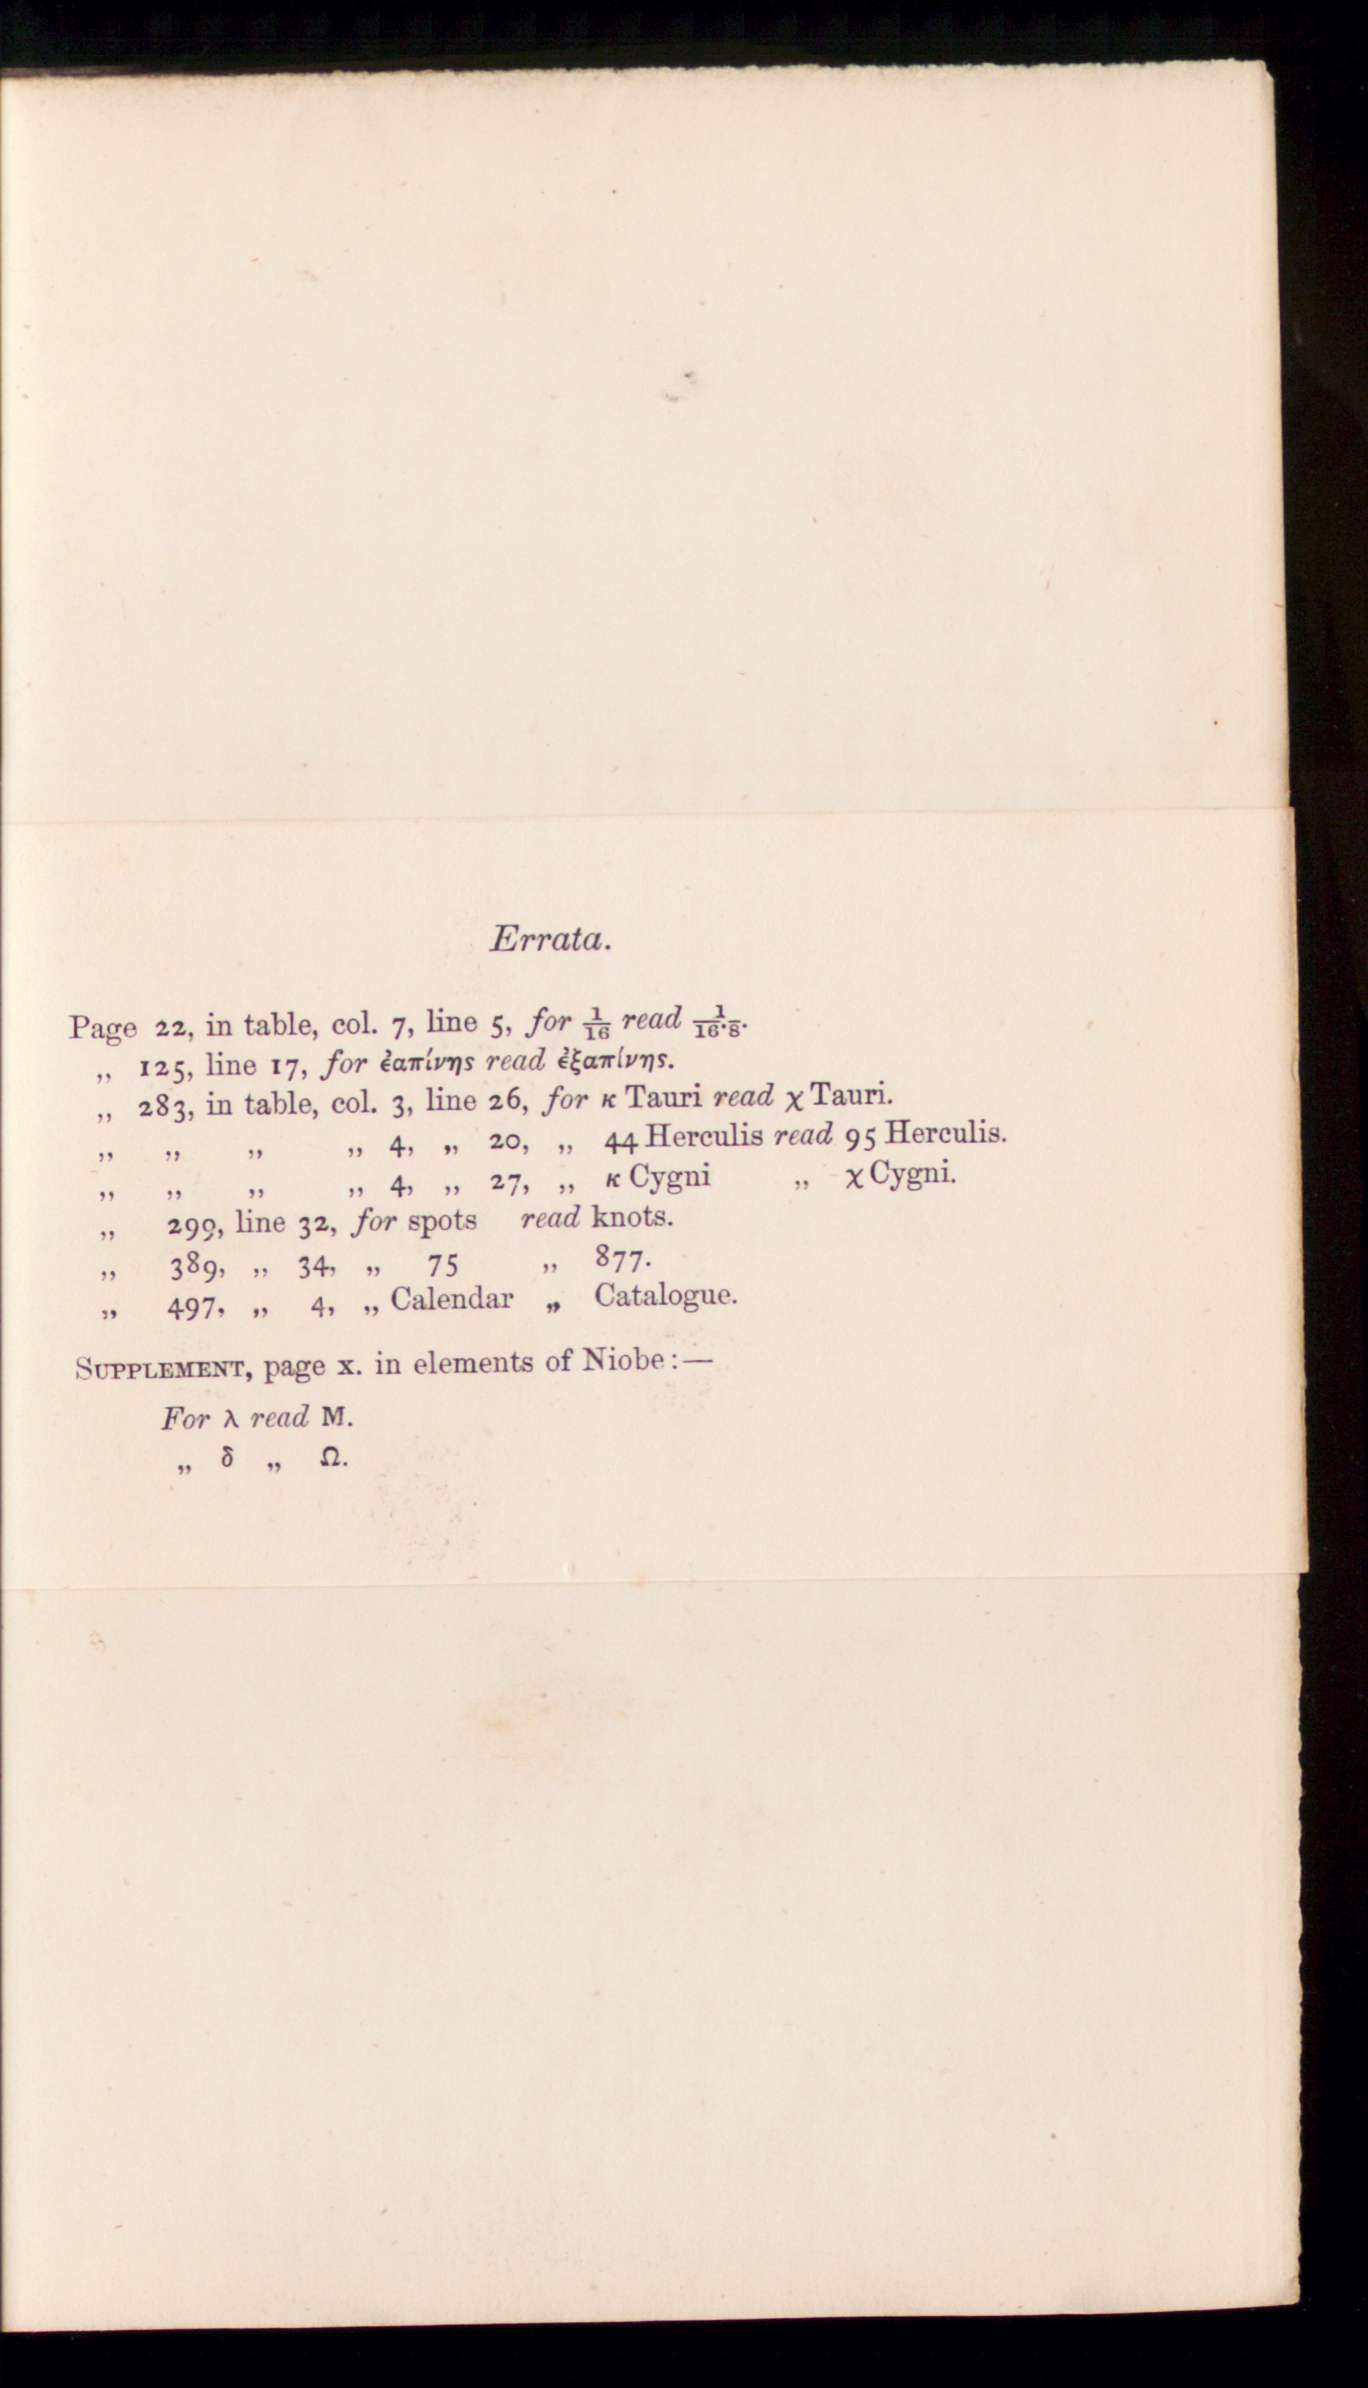 Errata.
Page 22, in table, col. 7, line 5, for 1/16 read 1/16·8.
„ 125, line 17, for ἐαπίνης read ἐξαπίνης.
„ 283, in table, col. 3, line 26, for κ Tauri read χ Tauri.
„ „ „ „ 4, „ 20, „ 44 Herculis read 95 Herculis.
„ „ „ „ 4, „ 27, „ κ Cygni „ χ Cygni.
„ 299, line 32, for spots read knots.
„ 389, „ 34, „ 75 „ 877.
„ 497, „ 4, „ Calendar „ Catalogue.
SUPPLEMENT, page x. in elements of Niobe:—
For λ read M.
„ δ „ Ω.